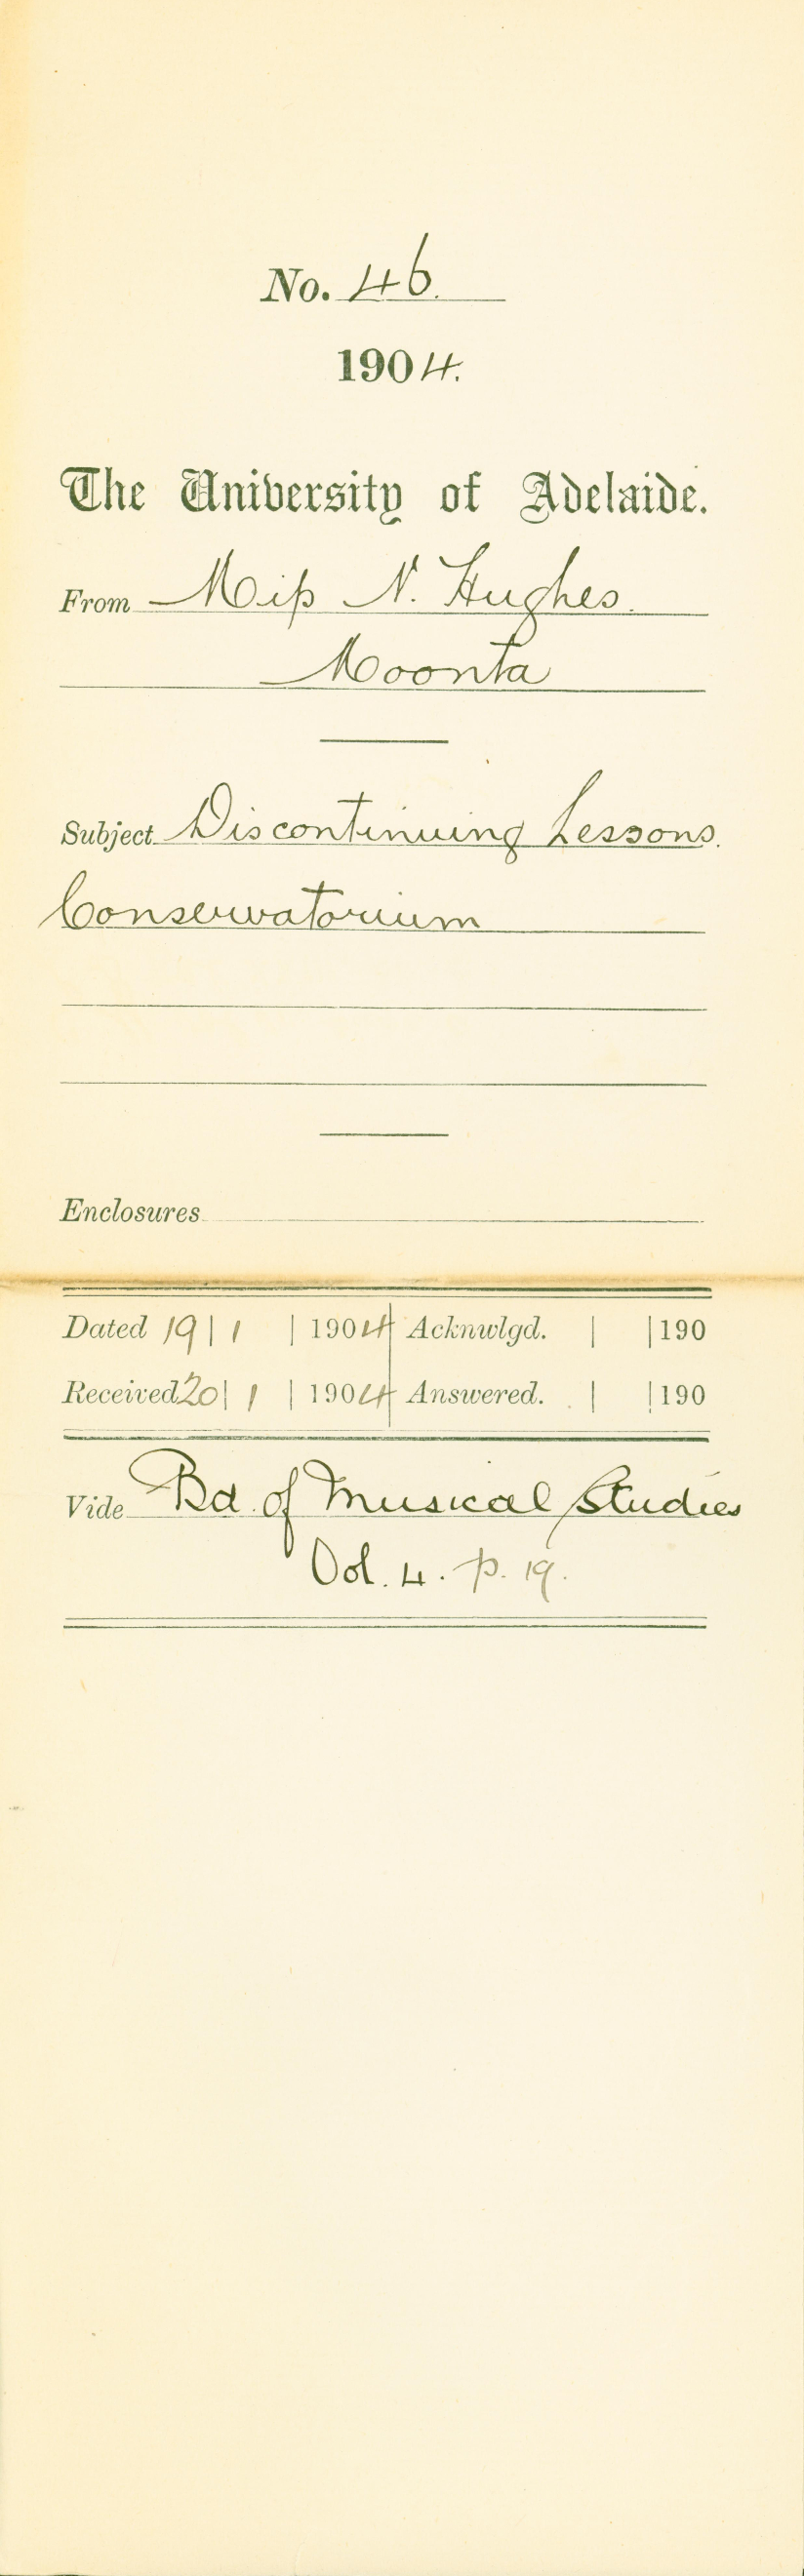 No. 46.
1904.
The University of Adelaide.
From Miss N. Hughes.
Moonta
Subject Discontinuing Lessons.
Conservatorium
Enclosures
Dated 19 | 1 | 1904 Acknwlgd. | | 190
Received 20 | 1 | 1904 Answered. | | 190
Vide Bd. of Musical Studies
Vol. 4. p. 19.